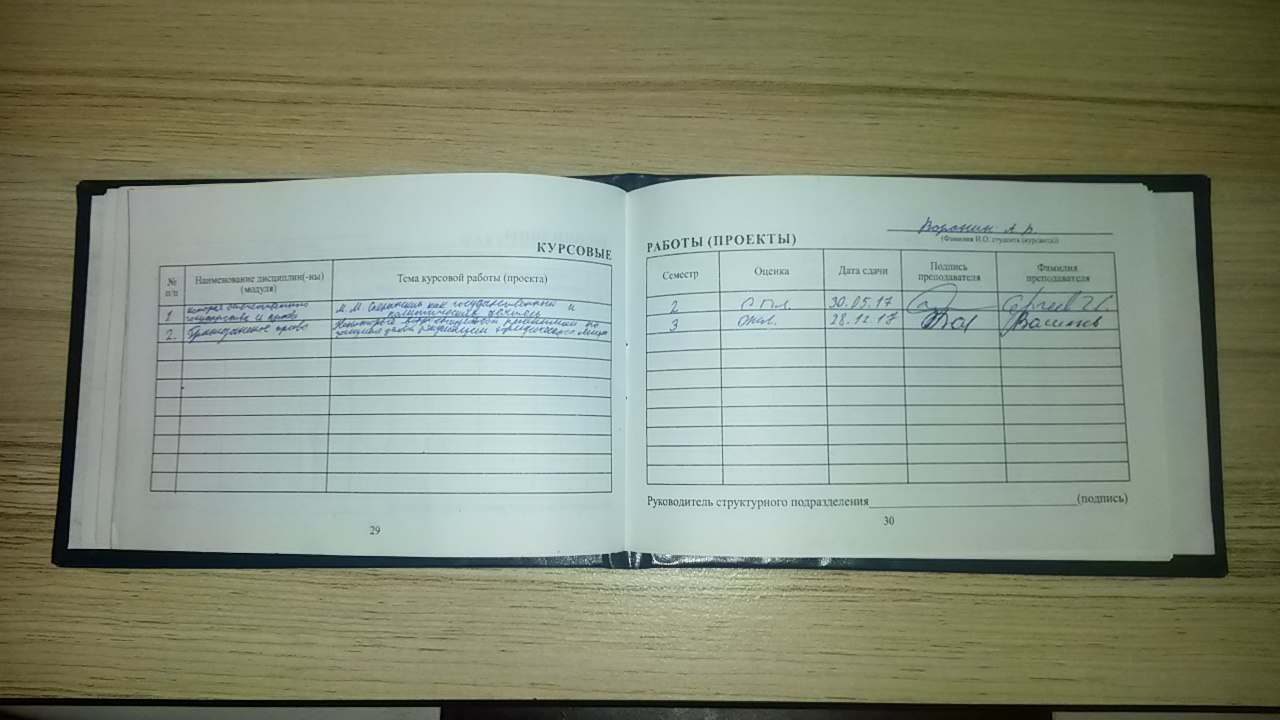 КУРСОВЫЕ
№ п/п
Наименование дисциплин(-ны) (модуля)
Тема курсовой работы (проекта)
1
история отечественного
государства и права
М. М. Сперанский как государственный и
политический деятель
2.
Гражданское право
29
Воронин А. В.
(Фамилия И.О. студента (курсанта))
РАБОТЫ (ПРОЕКТЫ)
Семестр
Оценка
Дата сдачи
Подпись преподавателя
Фамилия преподавателя
2
30.05.17
Сергеев
3
отл.
28.12 17
Васильев
Руководитель структурного подразделения (подпись)
30